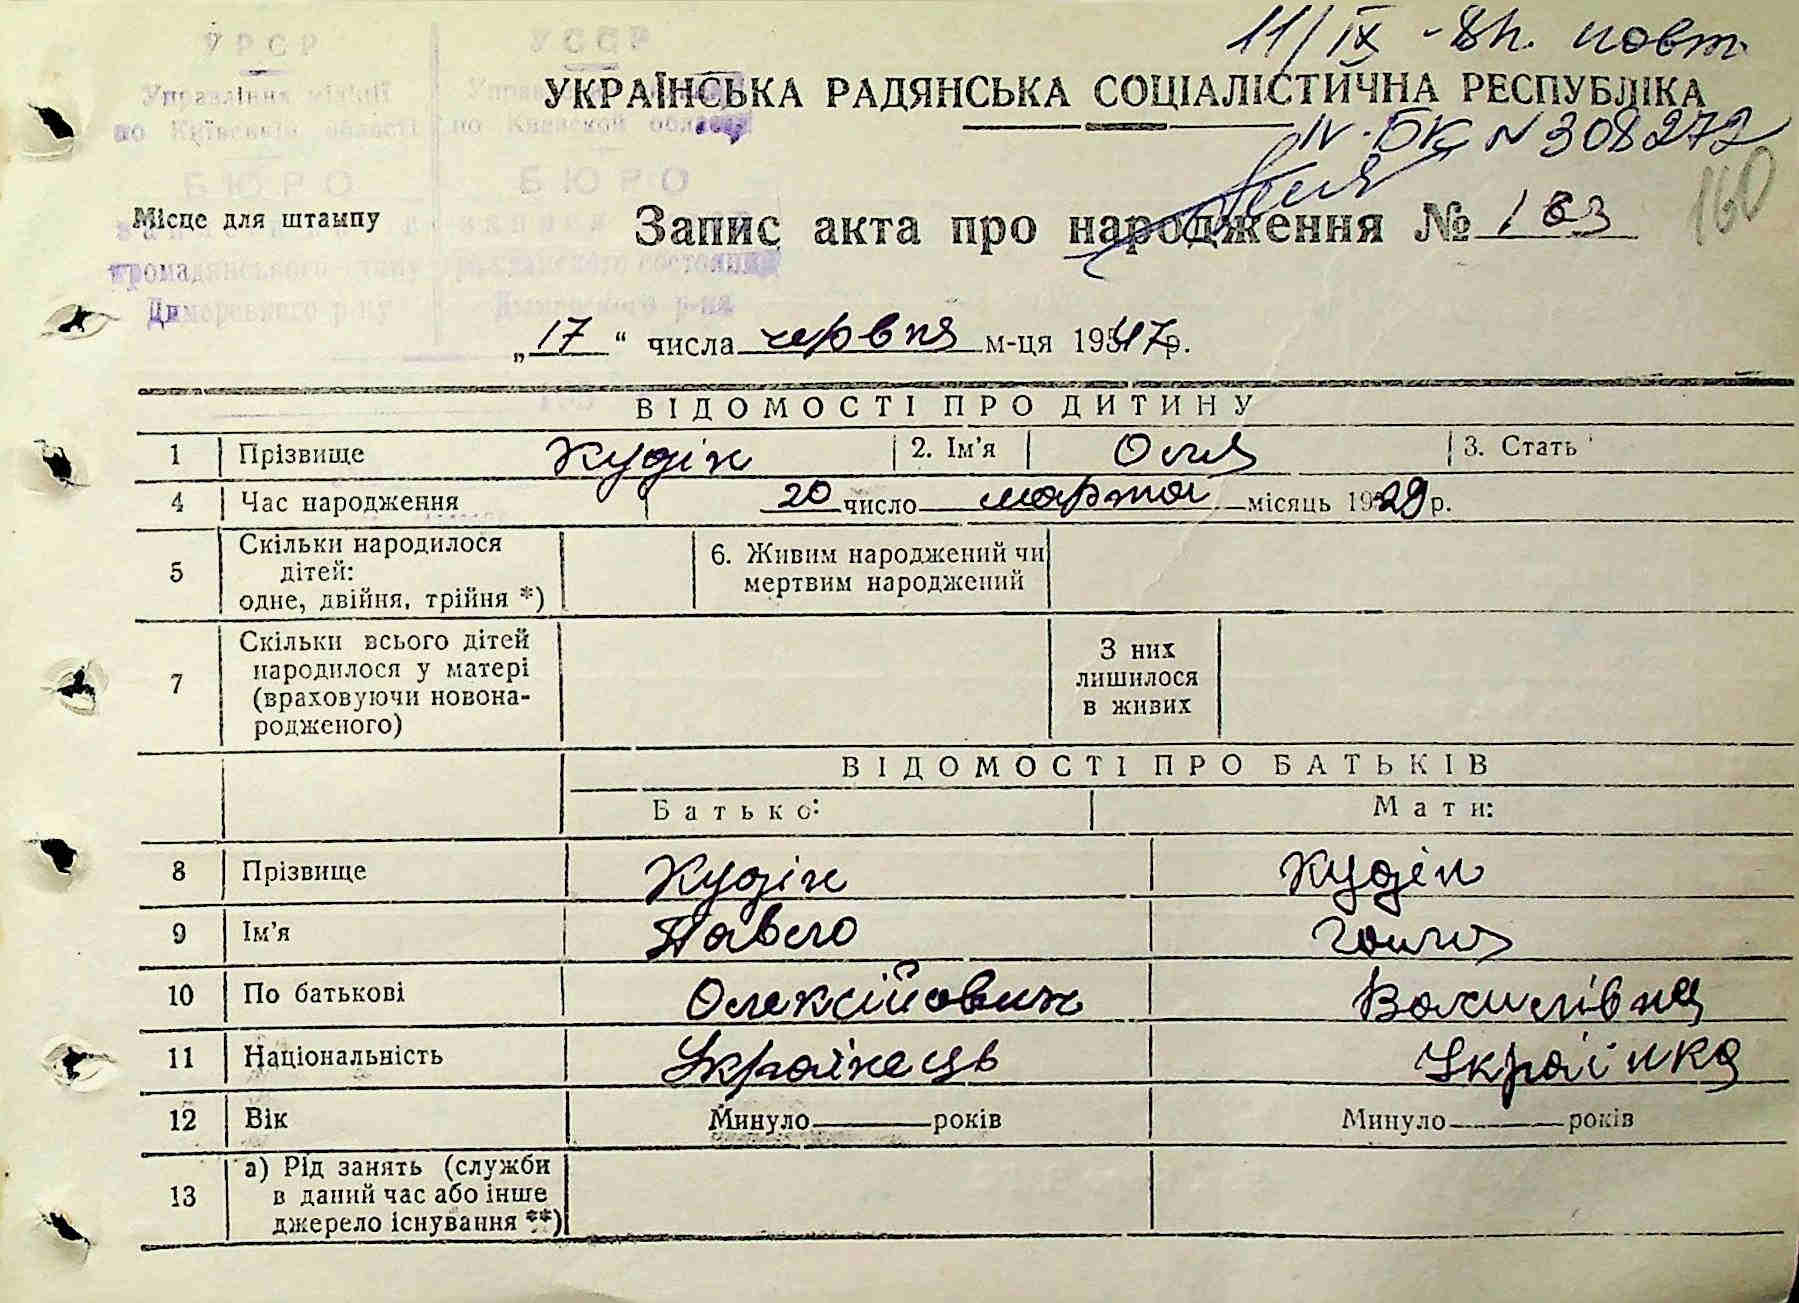 11/IX -81. повт.
УРСР УССР
УКРАЇНСЬКА РАДЯНСЬКА СОЦІАЛІСТИЧНА РЕСПУБЛІКА
Управління міліції
по Київській області по Киевской области
IV-БК N 308272
БЮРО БЮРО
160
Місце для штампу
Запис акта про народження № 163
громадянського стану гражданского состояния
Димерського р-ну Дымерского р-на
„17“ числа червня м-ця 1947р.
ВІДОМОСТІ ПРО ДИТИНУ
1 Прізвище Кудін 2. Ім'я Оля 3. Стать
4 Час народження 20 число марта місяць 1929 р.
5 Скільки народилося дітей: одне, двійня, трійня *) 6. Живим народжений чи мертвим народжений
7 Скільки всього дітей народилося у матері (враховуючи новонародженого) З них лишилося в живих
ВІДОМОСТІ ПРО БАТЬКІВ
Батько: Мати:
8 Прізвище Кудін Кудін
9 Ім'я Павло Ганна
10 По батькові Олексійович Василівна
11 Національність Українець Українка
12 Вік Минуло років Минуло років
13 а) Рід занять (служби в даний час або інше джерело існування **)